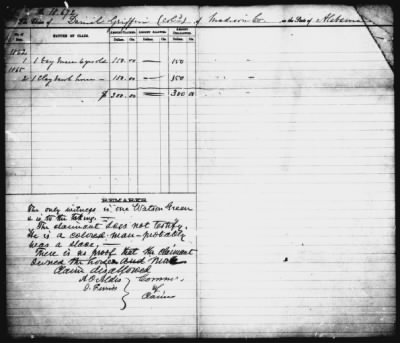 No. 10,672
The Claim of Daniel Griffin (col'd) of Madison Co. in the State of Alabama
No. of Item. NATURE OF CLAIM. AMOUNT CLAIMED. AMOUNT ALLOWED. AMOUNT DISALLOWED.
Dollars. Cts. Dollars. Cts. Dollars. Cts.
1862
1. 1 Bay Mare 6 yrs old 150.00 — 150
1865
2. 1 Clay bank horse — 150.00 — 150
$ 300.00 — 300 00
REMARKS.
The only witness is one Watson Green
as to the taking. —
The claimant does not testify.
He is a colored man—probably
was a slave. —
There is no proof that the claimant
owned the horse and mare
Claim disallowed
A. O. Aldis
O. Ferriss
Commrs
of
Claims